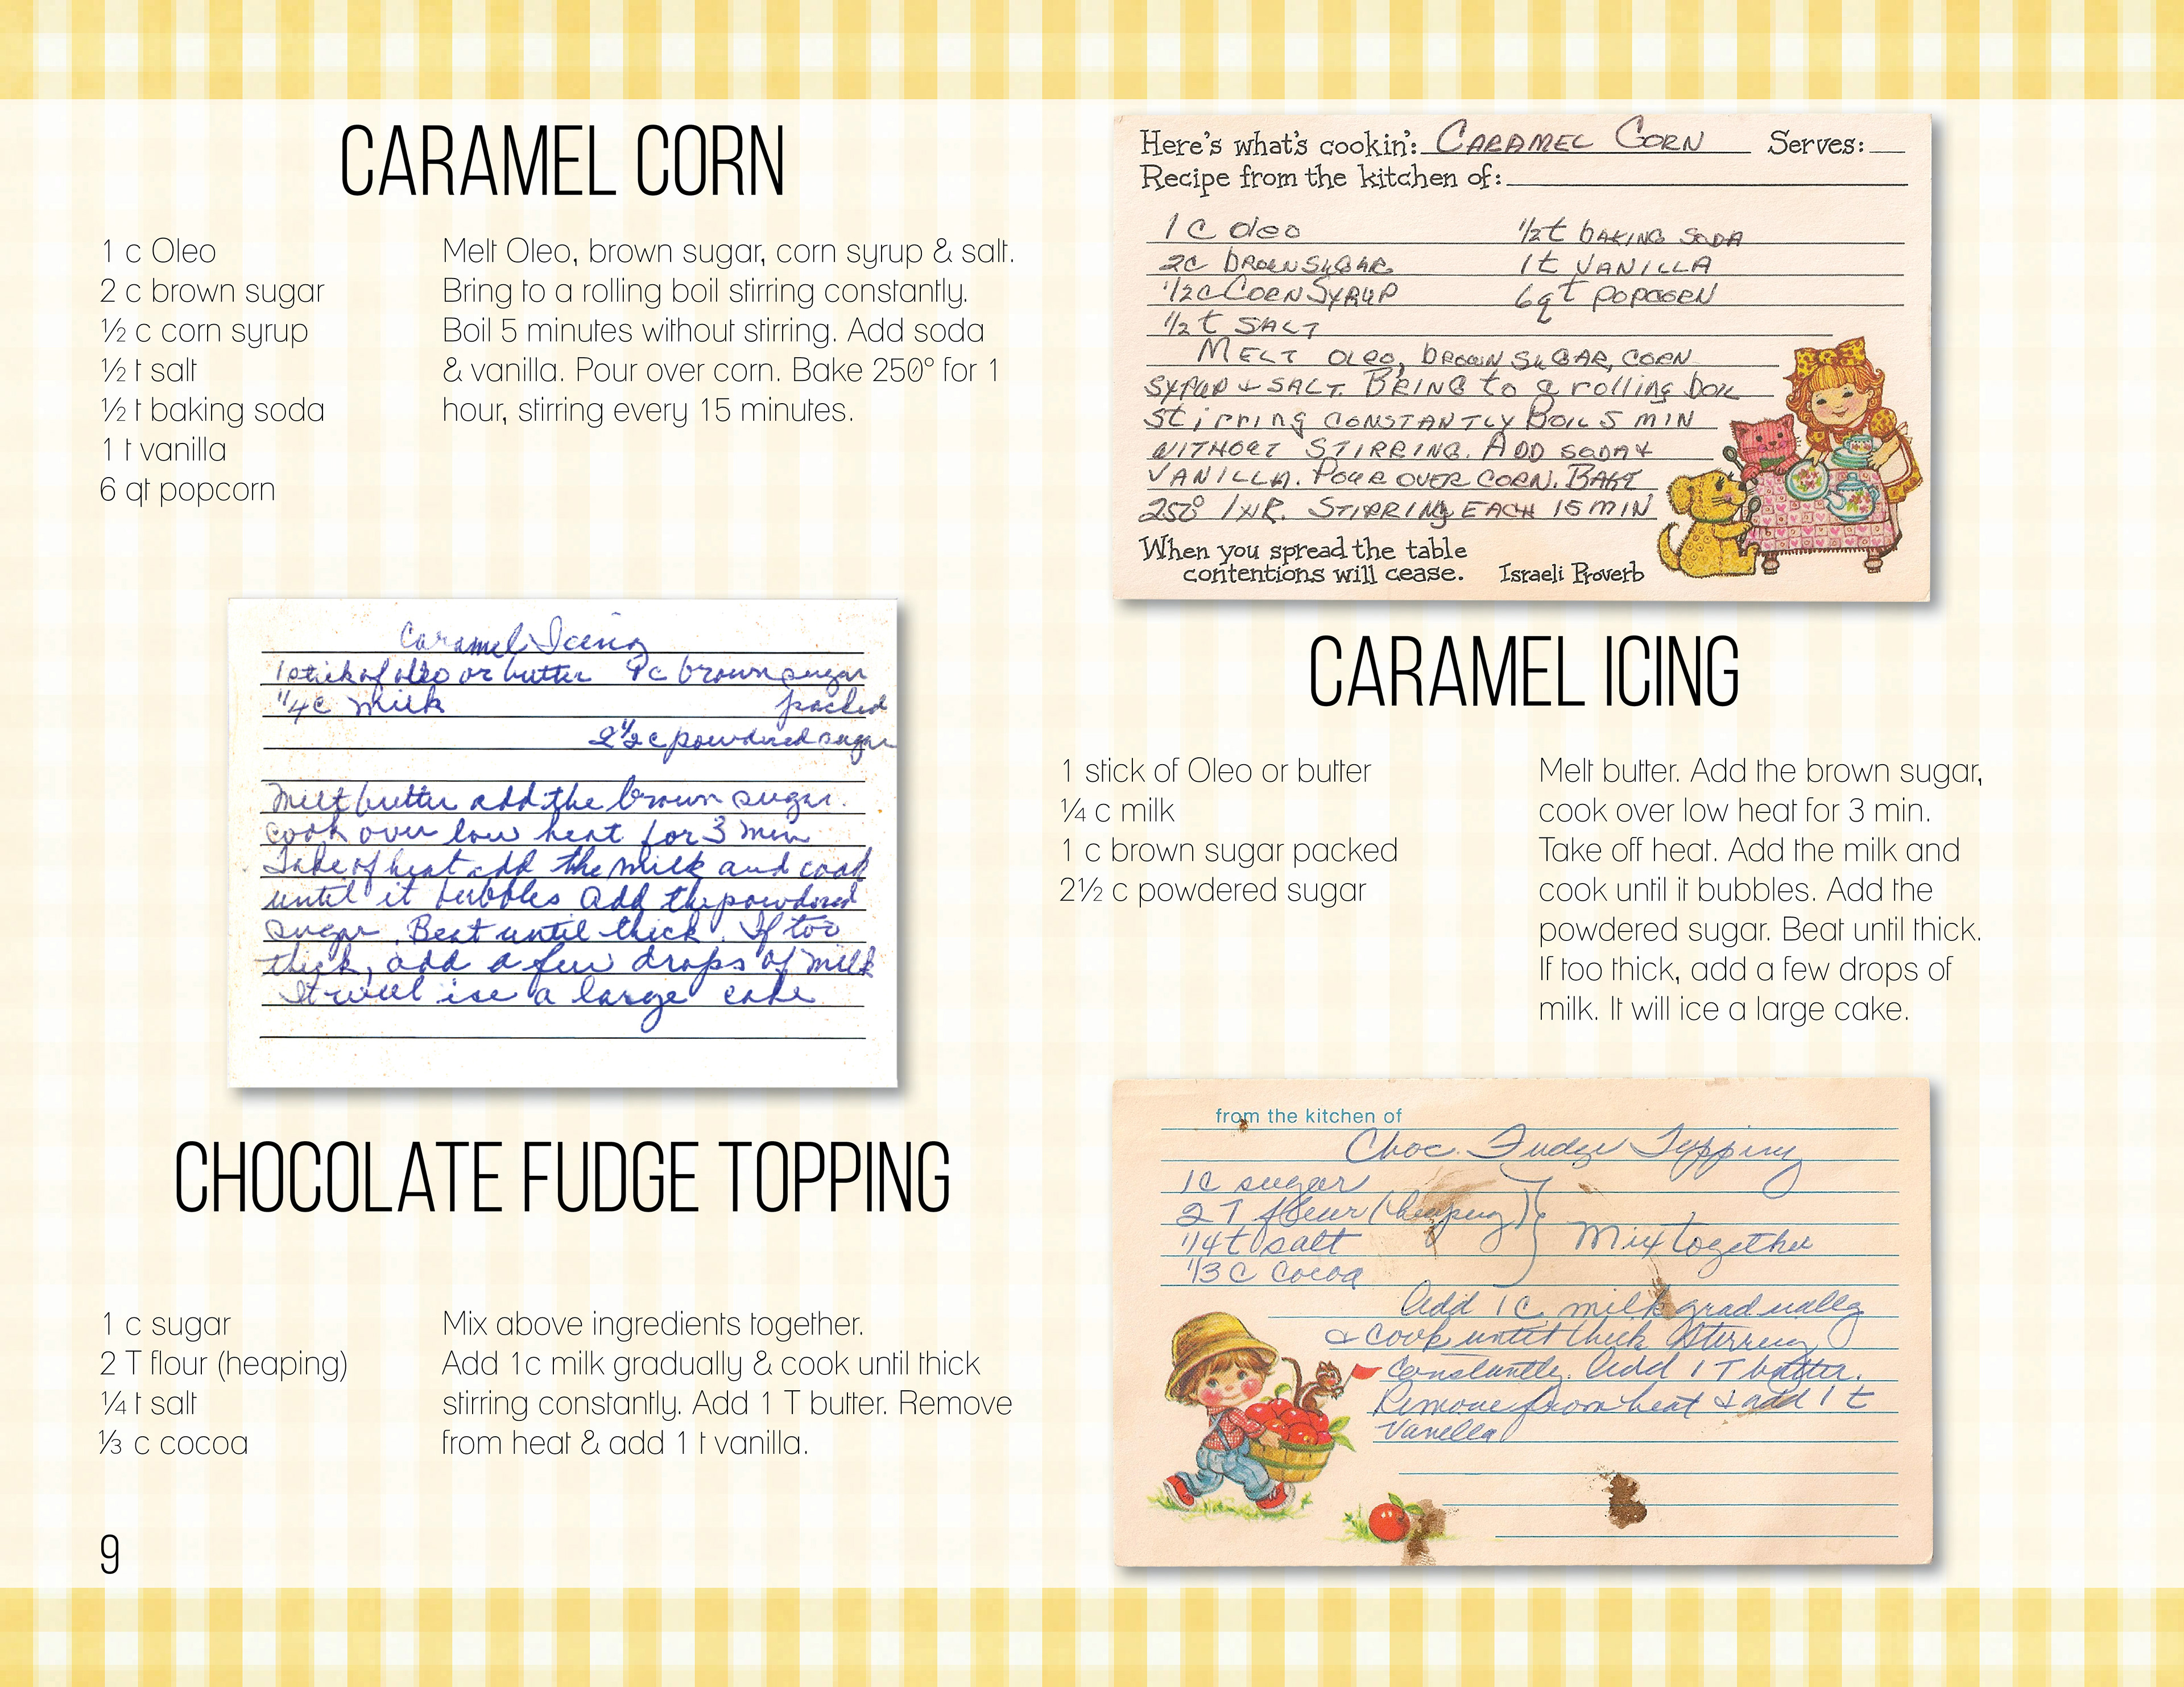 CARAMEL CORN
1 c Oleo
2 c brown sugar
½ c corn syrup
½ t salt
½ t baking soda
1 t vanilla
6 qt popcorn
Melt Oleo, brown sugar, corn syrup & salt.
Bring to a rolling boil stirring constantly.
Boil 5 minutes without stirring. Add soda
& vanilla. Pour over corn. Bake 250° for 1
hour, stirring every 15 minutes.
Here's what's cookin': CARAMEL CORN Serves:
Recipe from the kitchen of:
1 C oleo
2c BROWN SUGAR
1/2c CORN SYRUP
1/2 t SALT
1/2t BAKING SODA
1t VANILLA
6qt POPCORN
MELT OLEO, BROWN SUGAR, CORN
SYRUP & SALT. BRING to a rolling boil
Stirring CONSTANTLY BOIL 5 MIN
WITHOUT STIRRING. ADD SODA &
VANILLA. POUR OVER CORN. BAKE
250° 1 HR. STIRRING EACH 15 MIN
When you spread the table
contentions will cease. Israeli Proverb
Caramel Icing
1 stick of oleo or butter 1c brown sugar
1/4c milk packed
2 1/2 c powdered sugar
Melt butter add the brown sugar.
cook over low heat for 3 min
Take of heat add the milk and cook
until it bubbles add the powdered
sugar. Beat until thick. If too
thick, add a few drops of milk
It will ice a large cake
CARAMEL ICING
1 stick of Oleo or butter
¼ c milk
1 c brown sugar packed
2½ c powdered sugar
Melt butter. Add the brown sugar,
cook over low heat for 3 min.
Take off heat. Add the milk and
cook until it bubbles. Add the
powdered sugar. Beat until thick.
If too thick, add a few drops of
milk. It will ice a large cake.
CHOCOLATE FUDGE TOPPING
1 c sugar
2 T flour (heaping)
¼ t salt
⅓ c cocoa
Mix above ingredients together.
Add 1c milk gradually & cook until thick
stirring constantly. Add 1 T butter. Remove
from heat & add 1 t vanilla.
from the kitchen of
Choc. Fudge Topping
1C sugar
2 T flour (heaping)
1/4t salt
1/3 C Cocoa
Mix together
Add 1C milk gradually
& cook until thick stirring
constantly. Add 1 T butter.
Remove from heat & add 1 t
Vanilla
9